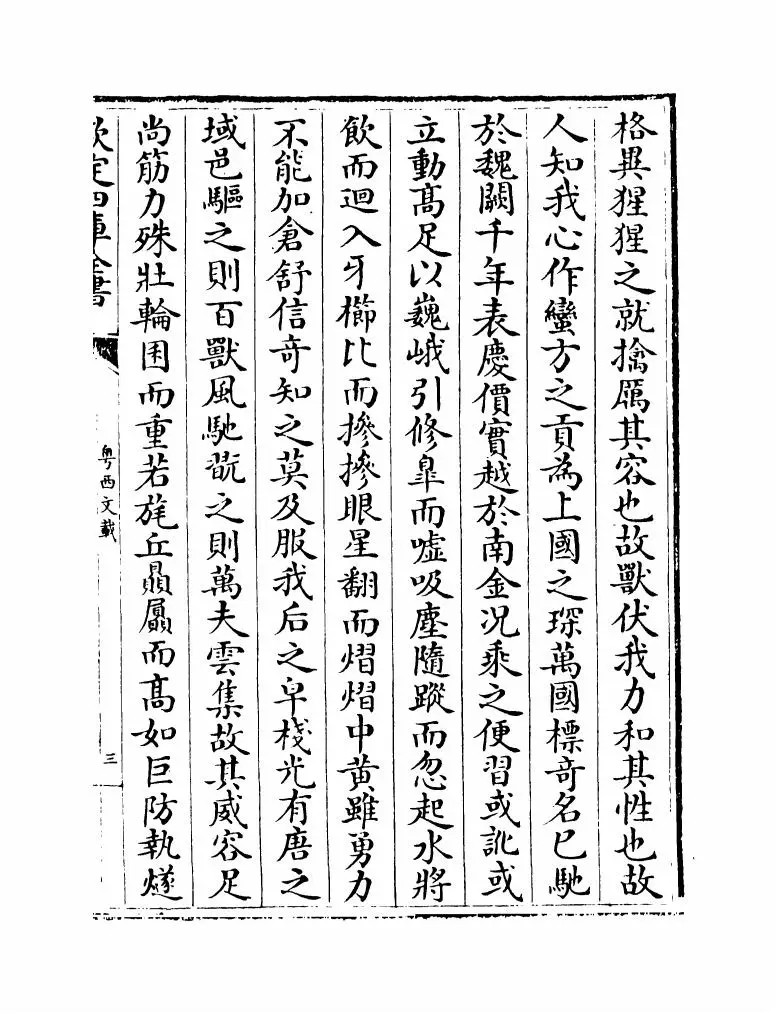 格異猩猩之就擒厲其容也故獸伏我力和其性也故
人知我心作蠻方之貢為上國之琛萬國標奇名已馳
於魏闕千年表慶價實越於南金况乘之便習或訛或
立動髙足以巍峨引修鼻而嘘吸塵隨蹤而忽起水將
飲而迴入牙櫛比而摻摻眼星翻而熠熠中黄雖勇力
不能加倉舒信奇知之莫及服我后之皁棧光有唐之
域邑驅之則百獸風馳翫之則萬夫雲集故其威容足
尚筋力殊壯輪囷而重若旄丘贔屭而髙如巨防執燧
欽定四庫全書
粤西文載
三